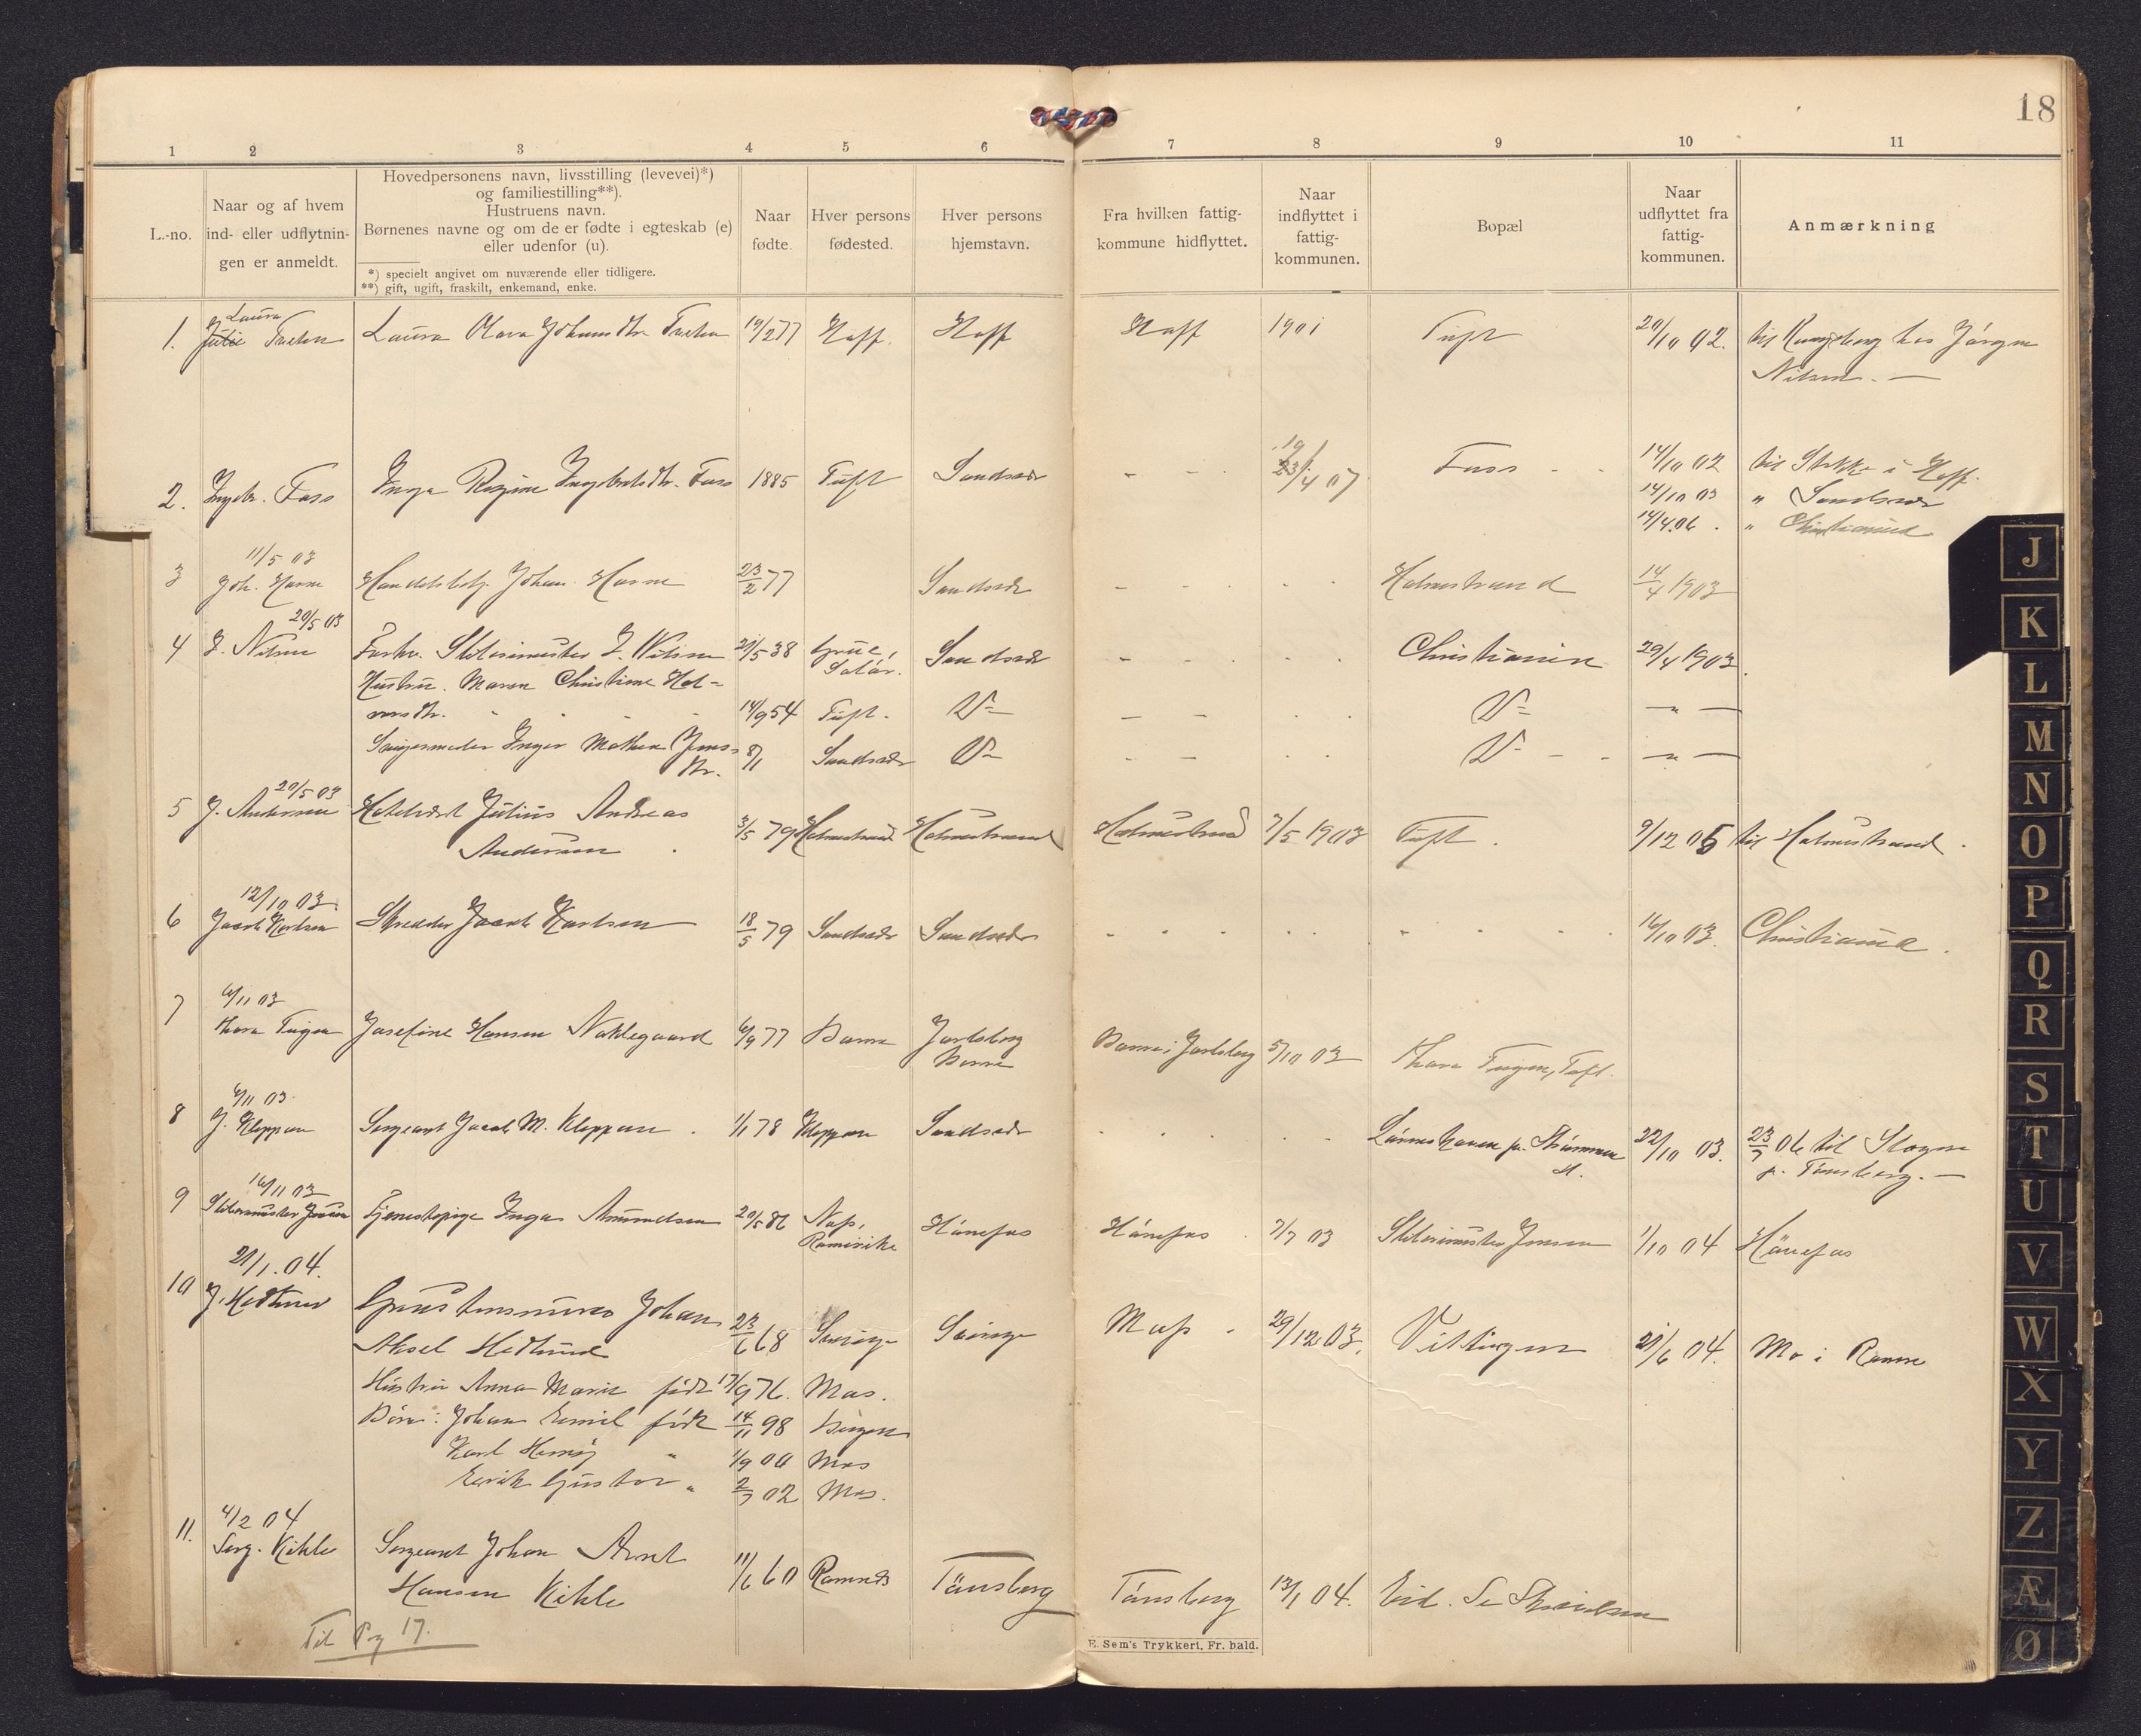 18
1 2 3 4 5 6 7 8 9 10 11
L.-no.
Naar og af hvem
ind- eller udflytnin-
gen er anmeldt.
Hovedpersonens navn, livsstilling (levevei)*)
og familiestilling**).
Hustruens navn.
Børnenes navne og om de er fødte i egteskab (e)
eller udenfor (u).
*) specielt angivet om nuværende eller tidligere.
**) gift, ugift, fraskilt, enkemand, enke.
Naar
fødte.
Hver persons
fødested.
Hver persons
hjemstavn.
Fra hvilken fattig-
kommune hidflyttet.
Naar
indflyttet i
fattig-
kommunen.
Bopæl
Naar
udflyttet fra
fattig-
kommunen.
Anmærkning
Laura
1. Julie Laura Olava 19/2 77 Hoff. Hoff Hoff 1901 Tuft 20/10 02. til Kongsberg hos Jörgen
Nilsen. —
19
2. Ingebr. Foss Inga Regine Ingebretsdtr. Foss 1885 Tuft Sandsvær - - 23/4 07 Foss - - 14/10 02 til i Hoff.
14/10 03 " Sandsvær
14/4.06. " Christiania
11/5 03
3 Joh. Johan 23/2 77 Sandsvær - - - - Holmestrand 14/4 1903
20/5 03
4 J. Nilsen Forhv. J. Nilsen 29/5 38 Grue, Sandsvær - - - - Christiania 29/4 1903.
Hustru. Maren Christine Hal- Solör.
14/9 54 Tuft. D= - - - - D= — " —
Inger Mathea Jens- 8/1 Sandsvær D= - - - - D= - - — " —
dtr.
20/5 03
5 J. Andersen Julius Andreas 3/5 79 Holmestrand Holmestrand Holmestrand 7/5 1903 Tuft. 9/12 05 til Holmestrand.
Andersen.
12/10 03
6 Jacob Karlsen Skredder Jacob Karlsen 18/5 79 Sandsvær Sandsvær - - - - - - - 16/10 03. Christiania.
6/11 03
7 Thora Josefine Hansen Naklegaard 6/9 77 Borre Jarlsberg Borre i Jarlsberg 5/10 03 Thora Tuft.
Borre
6/11 03
8 J. Kleppen Sergeant Jacob M. Kleppen. 1/1 78 Kleppen Sandsvær - - - - 22/10 03. 23/7 06 til Slagen
p. Tönsberg. —
16/11 03
9 Tjenestepige Inga Amundsen 20/5 86 Næs, Hönefos Hönefos. 7/7 03 1/10 04 Hönefos
Romerike
21/1.04.
10 J. Hedlund Johan
Aksel Hedlund 23/6 68 Sverige Sverige 29/12 03. Vittingen 21/6 04. Mo i Ranen
Hustru Anna Marie født 17/9 76. Mos.
Börn: Johan Emil født 14/11 98 Bergen
Karl " 1/9 00 Mos
Erik Gustav " 2/7 02 Mos.
4/2 04
11. Serg. Kihle Sergeant Johan Arnt
Hansen Kihle 11/6 60 Ramnes Tönsberg Tönsberg 13/1 04.
Til Pag 17.
E. Sem's Trykkeri, Fr. hald.
J
K
L
M
N
O
P
Q
R
S
T
U
V
W
X
Y
Z
Æ
Ø